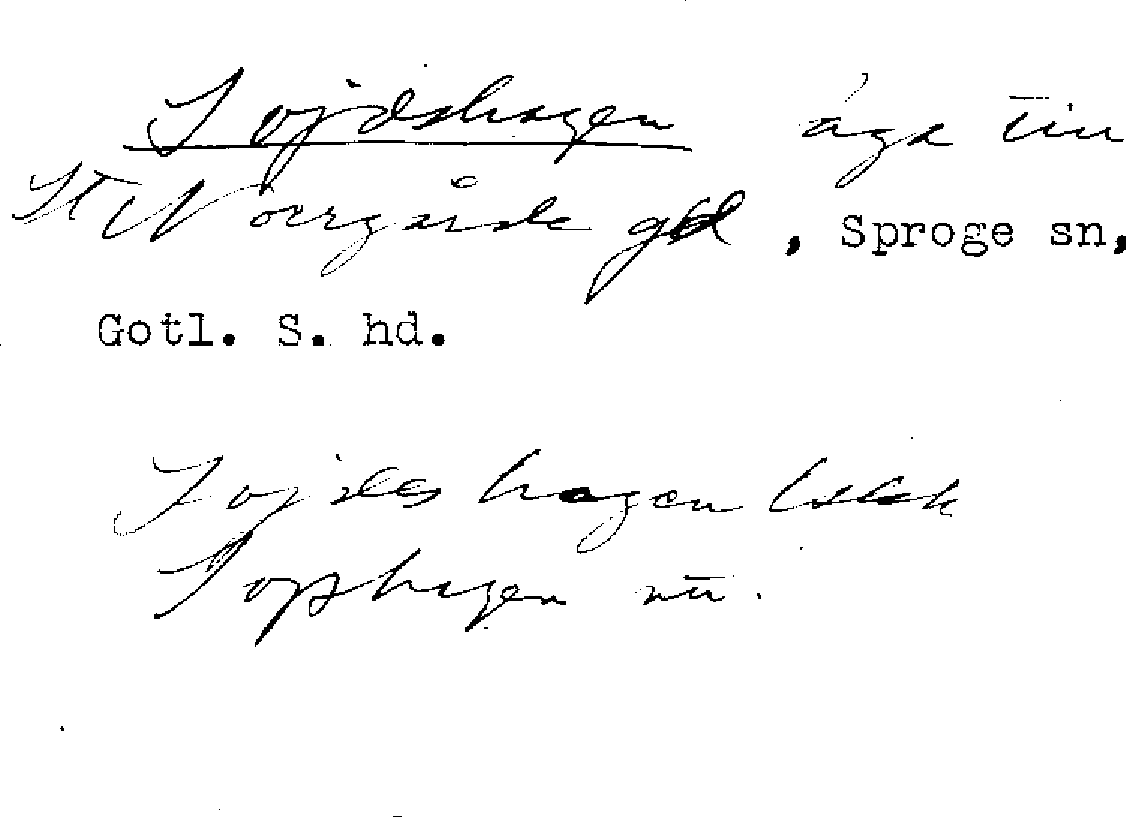 Tojdshagen äga till
St Norrgårde gd, Sproge sn,
Gotl. S. hd.
Tojdes hagen
Tophagen nu.